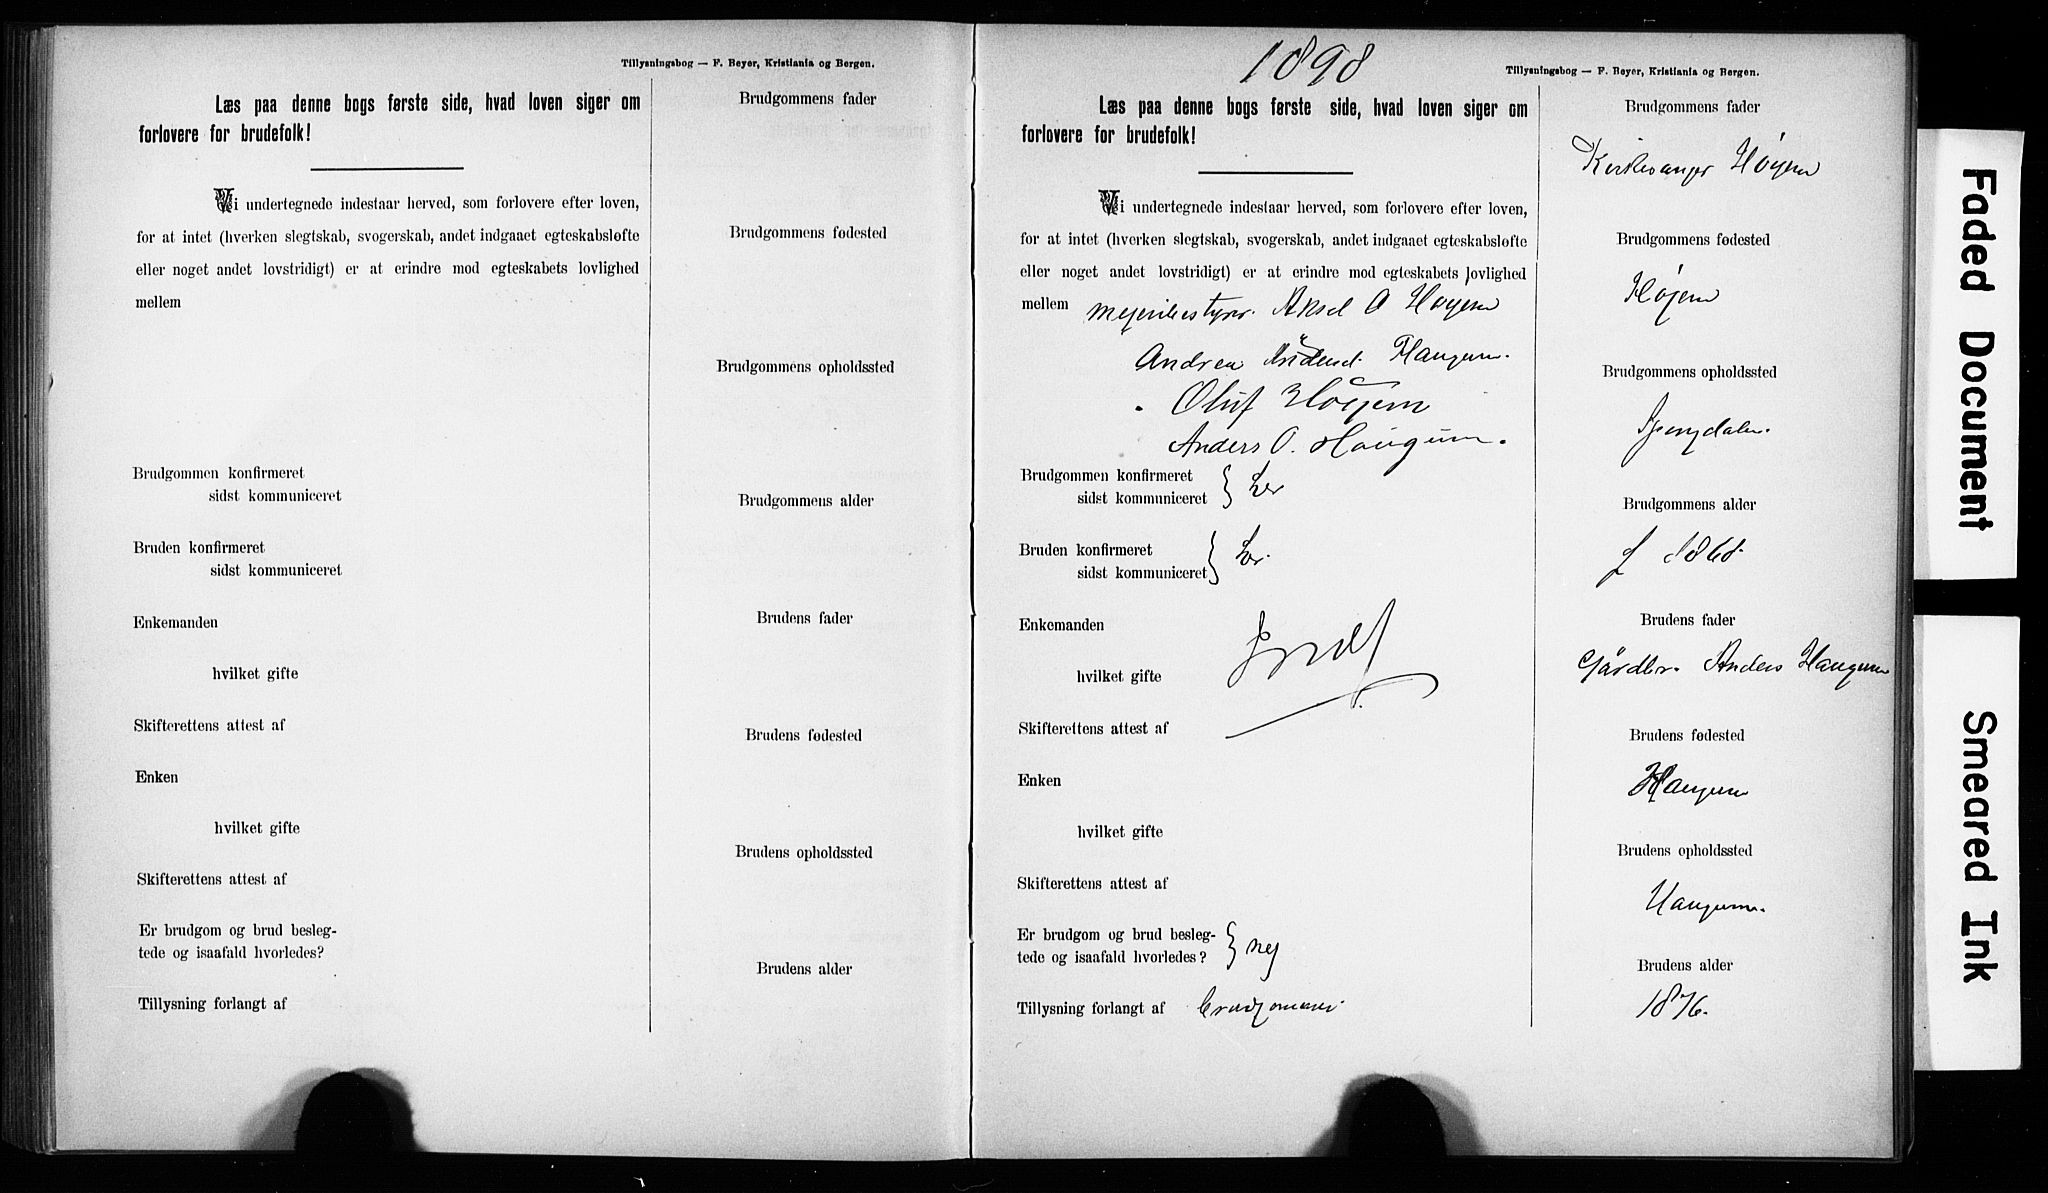 Tillysningsbog — F. Beyer, Kristiania og Bergen.
Læs paa denne bogs første side, hvad loven siger om
forlovere for brudefolk!
Vi undertegnede indestaar herved, som forlovere efter loven,
for at intet (hverken slegtskab, svogerskab, andet indgaaet egteskabsløfte
eller noget andet lovstridigt) er at erindre mod egteskabets lovlighed
mellem
Brudgommen konfirmeret
sidst kommuniceret
Bruden konfirmeret
sidst kommuniceret
Enkemanden
hvilket gifte
Skifterettens attest af
Enken
hvilket gifte
Skifterettens attest af
Er brudgom og brud besleg-
tede og isaafald hvorledes?
Tillysning forlangt af
Brudgommens fader
Brudgommens fødested
Brudgommens opholdssted
Brudgommens alder
Brudens fader
Brudens fødested
Brudens opholdssted
Brudens alder
1898
Tillysningsbog — F. Beyer, Kristiania og Bergen.
Læs paa denne bogs første side, hvad loven siger om
forlovere for brudefolk!
Vi undertegnede indestaar herved, som forlovere efter loven,
for at intet (hverken slegtskab, svogerskab, andet indgaaet egteskabsløfte
eller noget andet lovstridigt) er at erindre mod egteskabets lovlighed
mellem meieribestyrer Aksel O Høyem
Andrea Haugum.
Oluf Høyem
Anders O. Haugum.
Brudgommen konfirmeret
sidst kommuniceret } Ler
Bruden konfirmeret
sidst kommuniceret } Ler.
Enkemanden
hvilket gifte
Skifterettens attest af
Enken
hvilket gifte
Skifterettens attest af
Er brudgom og brud besleg-
tede og isaafald hvorledes? } nej
Tillysning forlangt af brudgommen
Brudgommens fader
Kirkesanger Høyem
Brudgommens fødested
Høyem
Brudgommens opholdssted
Brudgommens alder
f 1868
Brudens fader
Gårdbr. Anders Haugum
Brudens fødested
Haugum
Brudens opholdssted
Haugum.
Brudens alder
1876.
Faded Document
Smeared Ink